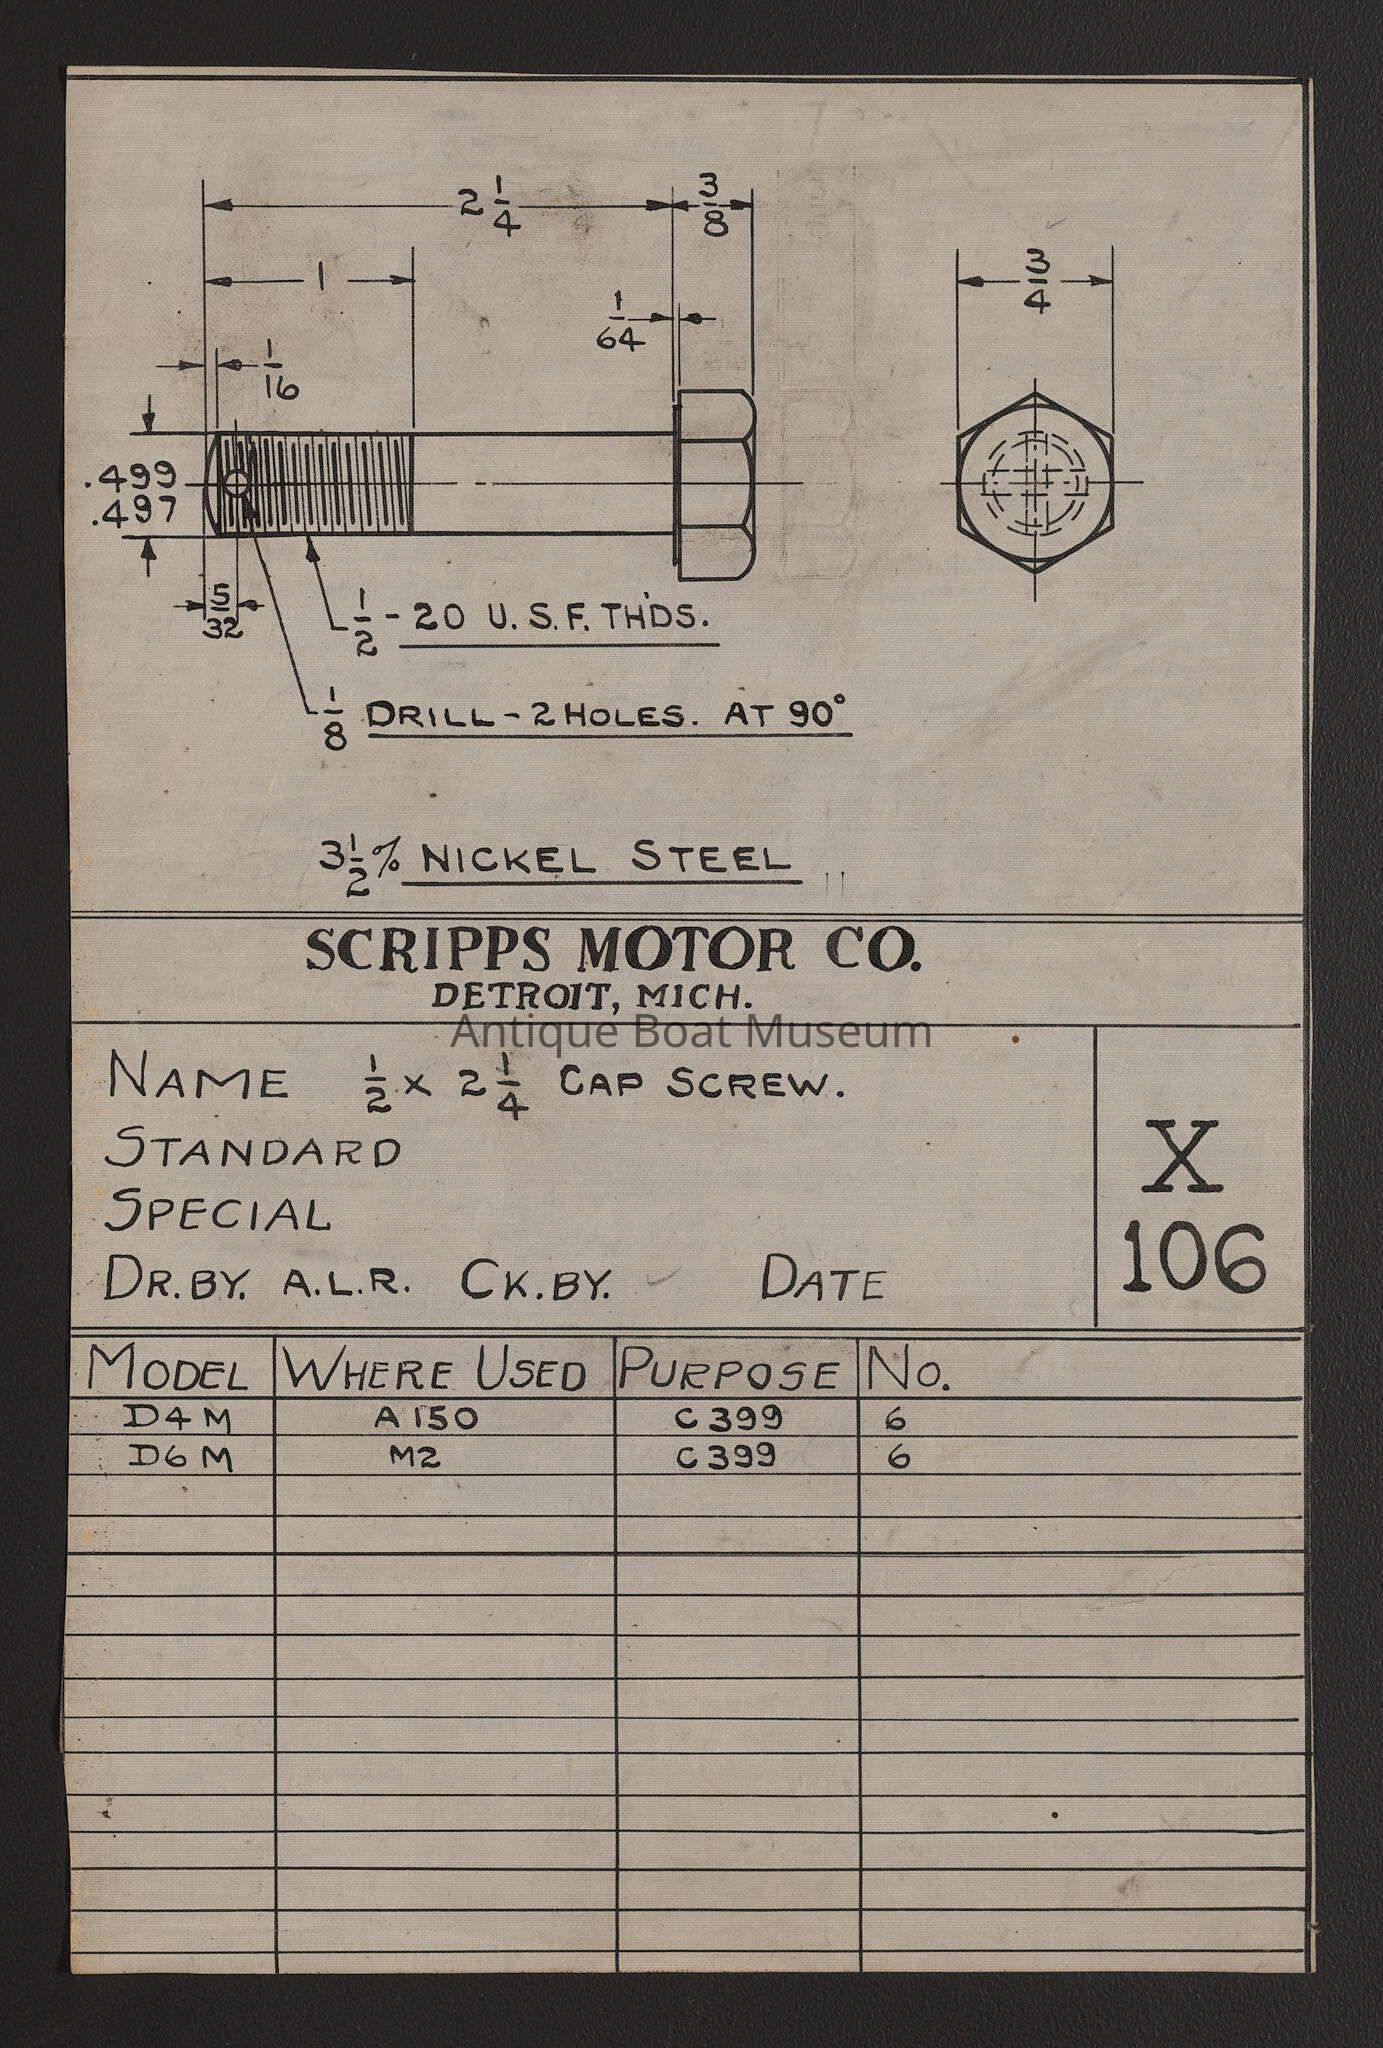 2 1/4
3/8
1
3/4
1/64
1/16
.499
.497
5/32
1/2 - 20 U.S.F. TH'DS.
1/8 DRILL - 2 HOLES. AT 90°
3 1/2 % NICKEL STEEL
SCRIPPS MOTOR CO.
DETROIT, MICH.
Antique Boat Museum
NAME 1/2 x 2 1/4 CAP SCREW.
STANDARD
SPECIAL
DR. BY. A.L.R. CK. BY. DATE
X
106
MODEL WHERE USED PURPOSE NO.
D4M A150 C399 6
D6M M2 C399 6